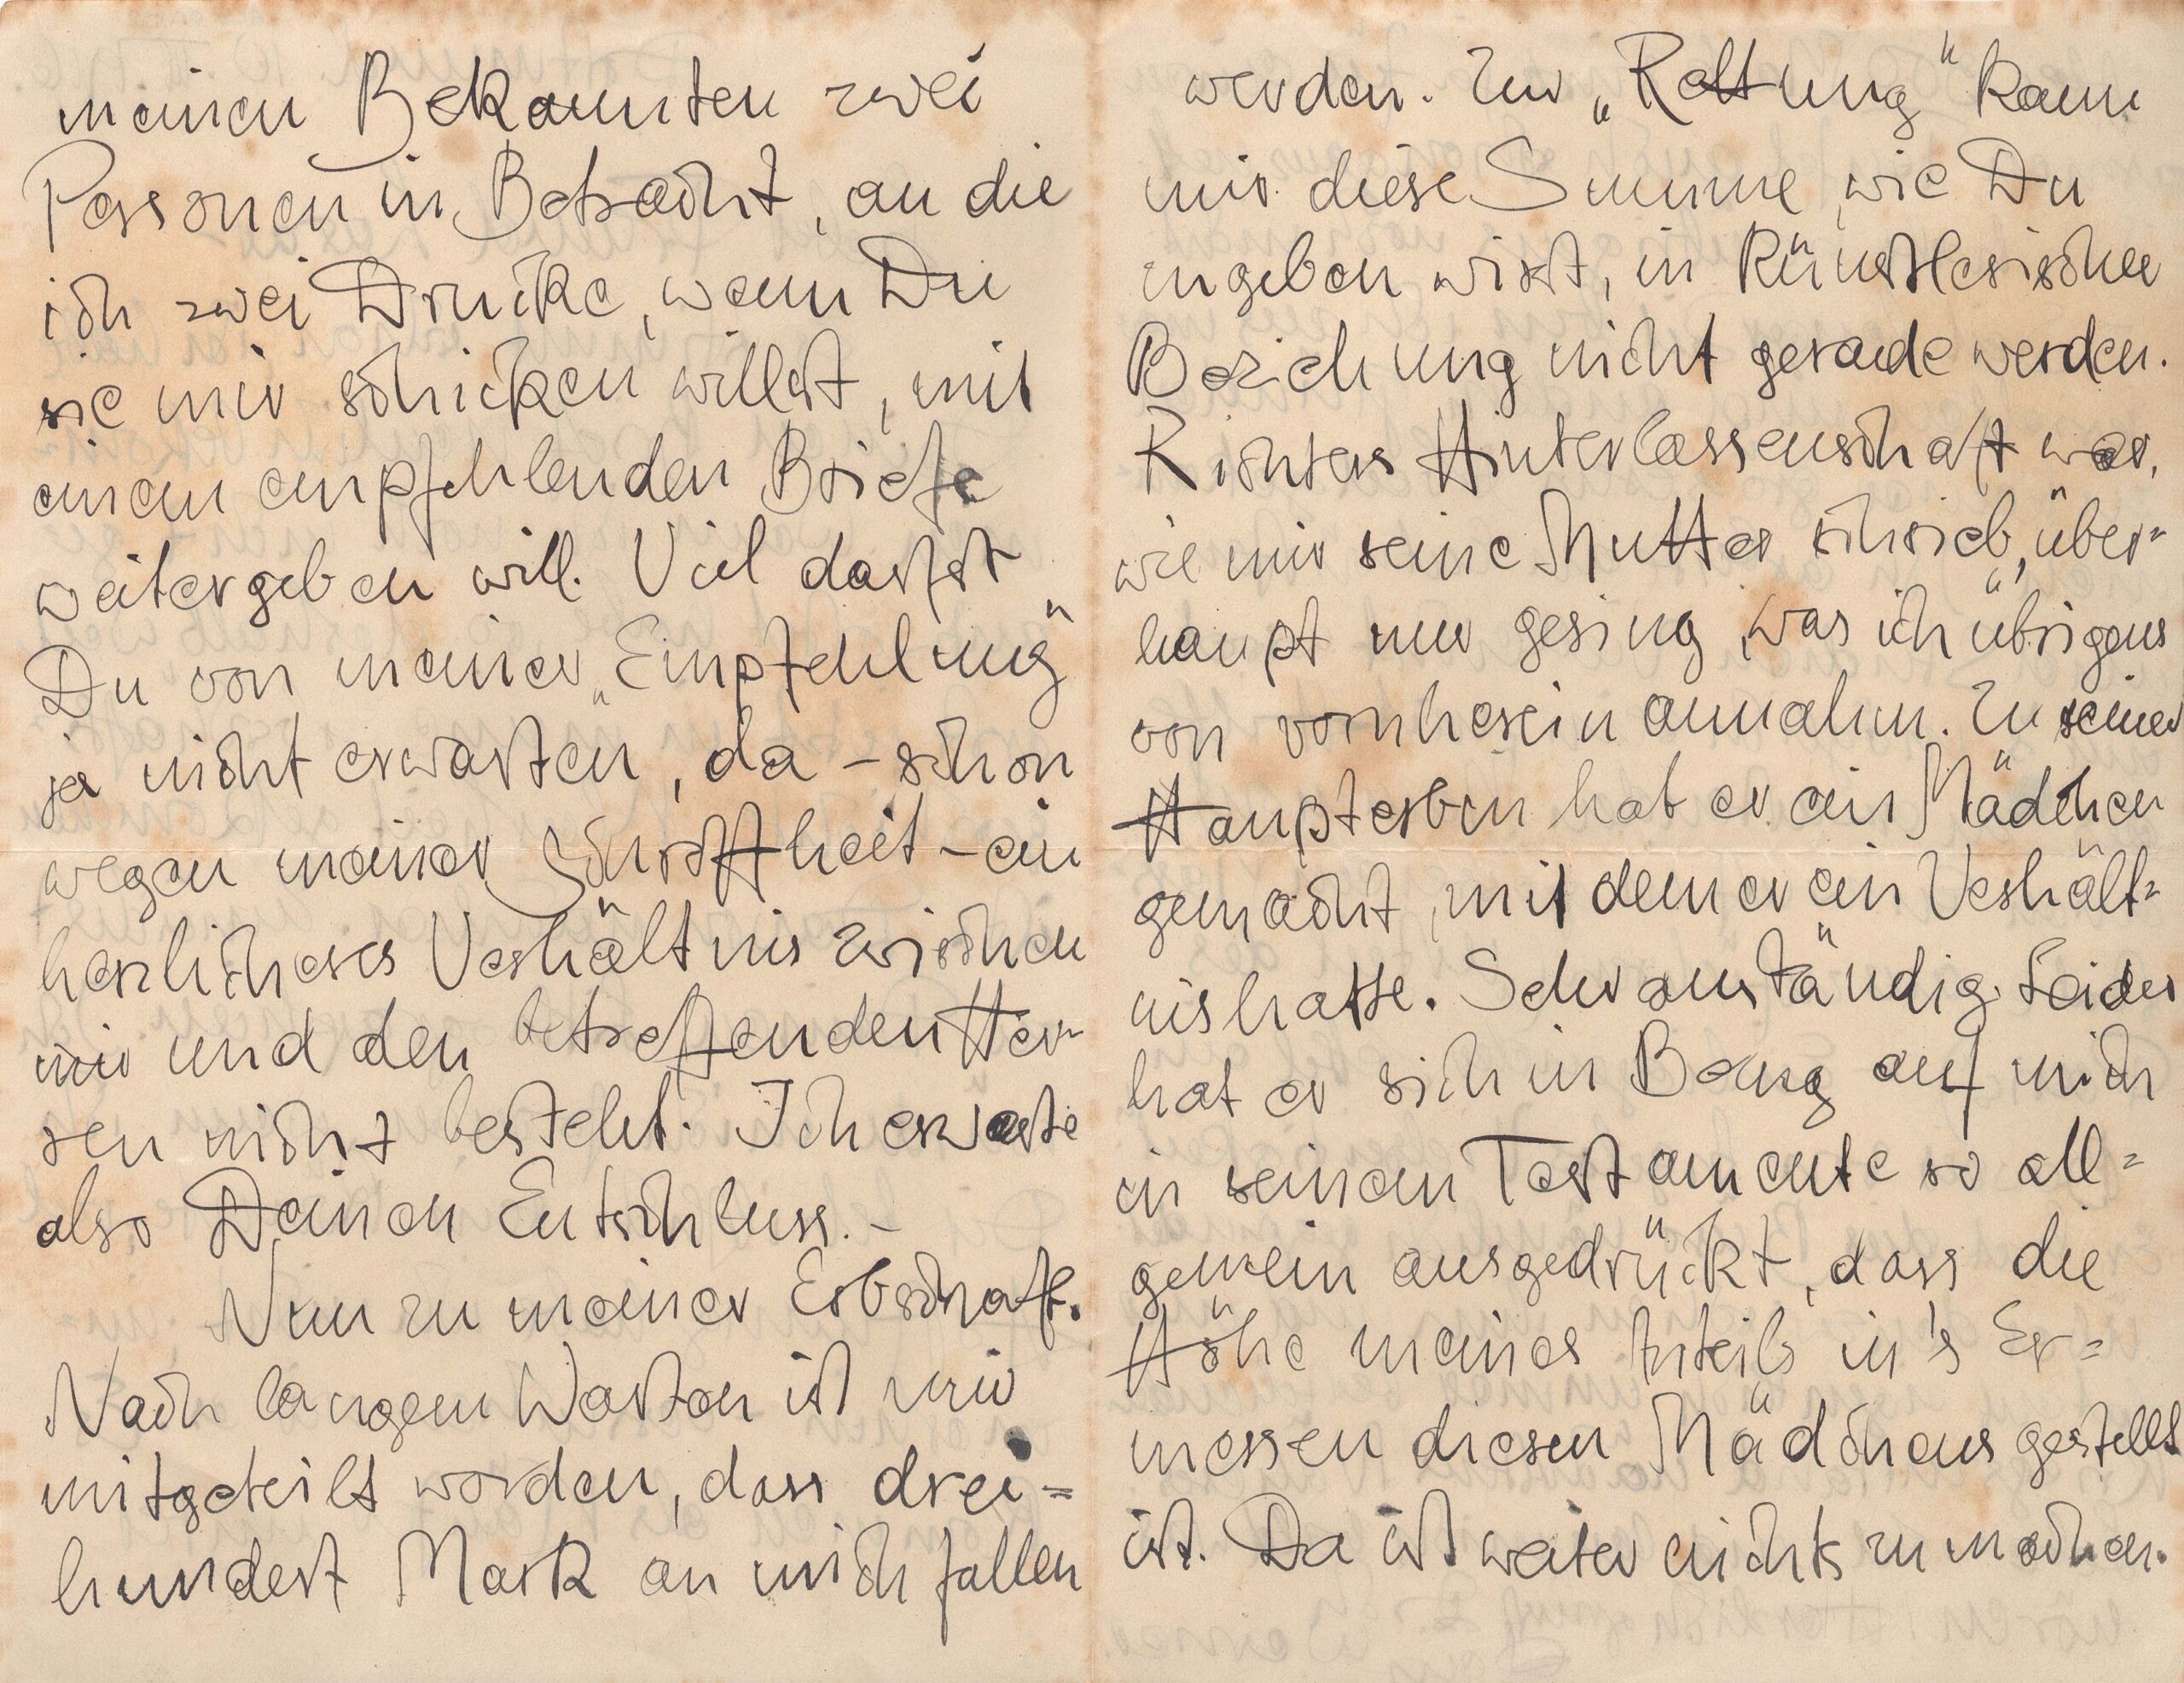 meinen Bekannten zwei
Personen in Betracht, an die
ich zwei Drucke, wenn Du
sie mir schicken willst, mit
einem empfehlenden Briefe
weitergeben will. Viel darfst
Du von meiner „Empfehlung“
ja nicht erwarten, da – schon
wegen meiner Schroffheit – ein
herzlicheres Verhältnis zwischen
mir und den betreffenden Her-
ren nicht besteht. Ich erwarte
also Deinen Entschluss. –
Nun zu meiner Erbschaft.
Nach langem Warten ist mir
mitgeteilt worden, dass drei=
hundert Mark an mich fallen
werden. Zur „Rettung“ kann
mir diese Summe, wie Du
zugeben wirst, in künstlerischer
Beziehung nicht gerade werden.
Richters Hinterlassenschaft war,
wie mir seine Mutter schrieb, über=
haupt nur gering, was ich übrigens
von vornherein annahm. Zu seiner
Haupterbin hat er ein Mädchen
gemacht, mit dem er ein Verhält=
nis hatte. Sehr anständig. Leider
hat er sich in Bezug auf mich
in seinem Testamente so all=
gemein ausgedrückt, dass die
Höhe meines Anteils in's Er=
messen dieses Mädchens gestellt
ist. Da ist weiter nichts zu machen.